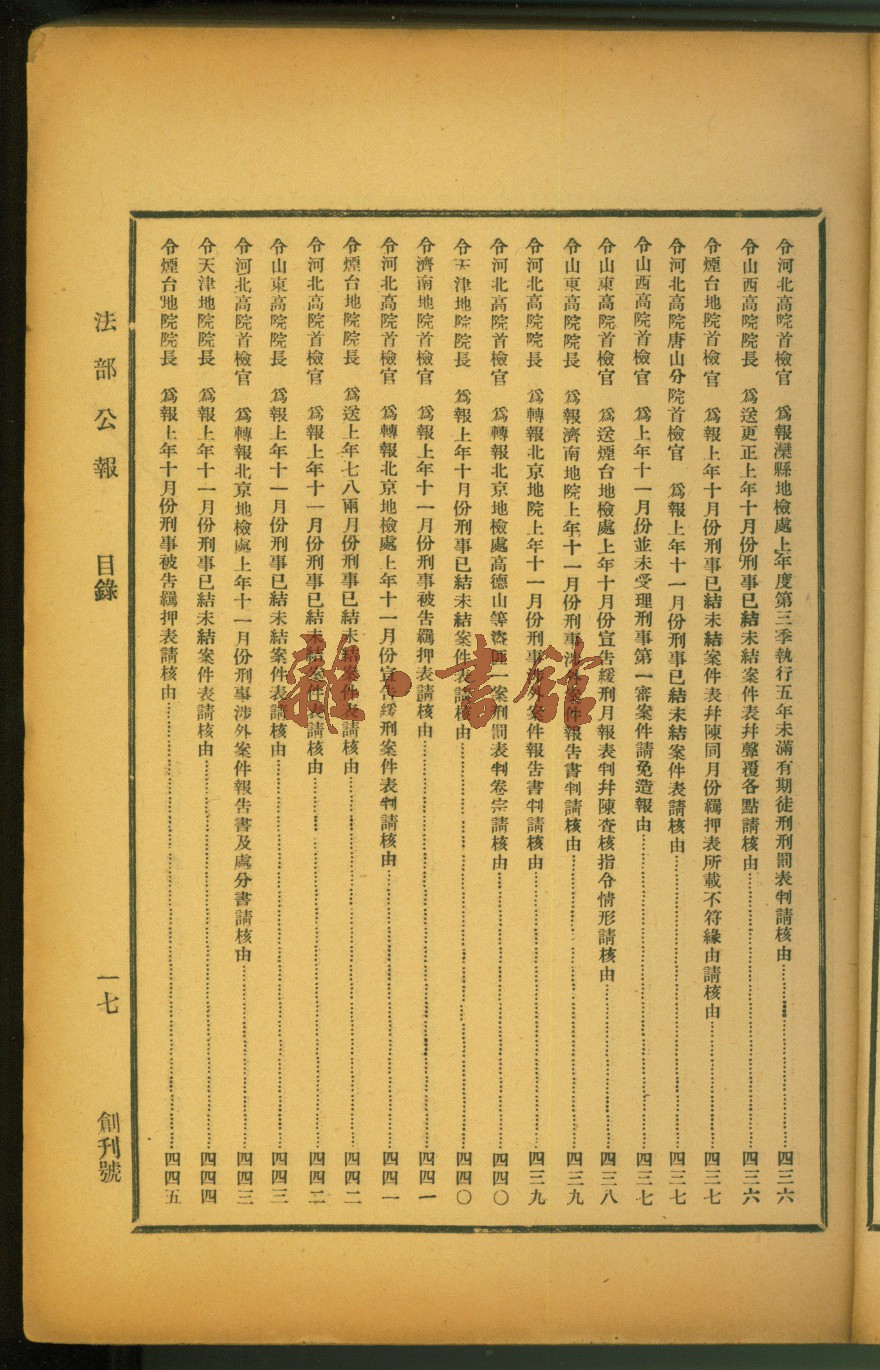 令河北高院首檢官　爲報灤縣地檢處上年度第三季執行五年未滿有期徒刑刑罰表判請核由……四三六
令山西高院院長　爲送更正上年十月份刑事已結未結案件表幷聲覆各點請核由……四三六
令煙台地院首檢官　爲報上年十月份刑事已結未結案件表幷陳同月份羈押表所載不符緣由請核由……四三七
令河北高院唐山分院首檢官　爲報上年十一月份刑事已結未結案件表請核由……四三七
令山西高院首檢官　爲上年十一月份並未受理刑事第一審案件請免造報由……四三七
令山東高院首檢官　爲送煙台地檢處上年十月份宣告緩刑月報表判幷陳查核指令情形請核由……四三八
令山東高院院長　爲報濟南地院上年十一月份刑事涉外案件報告書判請核由……四三九
令河北高院院長　爲轉報北京地院上年十一月份刑事涉外案件報告書判請核由……四三九
令河北高院首檢官　爲轉報北京地檢處高德山等盜匪一案刑罰表判卷宗請核由……四四〇
令天津地院院長　爲報上年十月份刑事已結未結案件表請核由……四四〇
令濟南地院首檢官　爲報上年十一月份刑事被告羈押表請核由……四四一
令河北高院首檢官　爲轉報北京地檢處上年十一月份宣告緩刑案件表判請核由……四四一
令煙台地院院長　爲送上年七八兩月份刑事已結未結案件表請核由……四四二
令河北高院首檢官　爲報上年十一月份刑事已結未結案件表請核由……四四二
令山東高院院長　爲報上年十一月份刑事已結未結案件表請核由……四四三
令河北高院首檢官　爲轉報北京地檢處上年十一月份刑事涉外案件報告書及處分書請核由……四四三
令天津地院院長　爲報上年十一月份刑事已結未結案件表請核由……四四四
令煙台地院院長　爲報上年十月份刑事被告羈押表請核由……四四五
法部公報　目錄　一七　創刊號
雜·書館